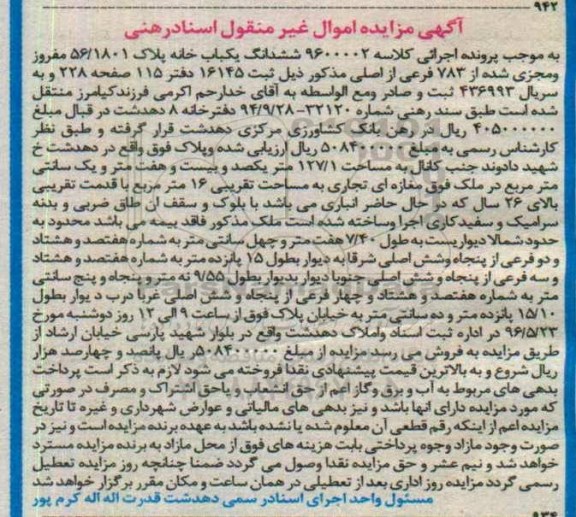 ۹۴۲
آگهی مزایده اموال غیر منقول اسنادرهنی
به موجب پرونده اجرائی کلاسه ۹۶۰۰۰۰۲ ششدانگ یکباب خانه پلاک ۵۶/۱۸۰۱ مفروز
ومجزی شده از ۷۸۳ فرعی از اصلی مذکور ذیل ثبت ۱۶۱۴۵ دفتر ۱۱۵ صفحه ۲۲۸ و به
سریال ۴۳۶۹۹۳ ثبت و صادر ومع الواسطه به آقای خدارحم اکرمی فرزندکیامرز منتقل
شده است طبق سند رهنی شماره ۳۲۱۲۰-۹۴/۹/۲۸ دفترخانه ۸ دهدشت در قبال مبلغ
ریال در رهن بانک کشاورزی مرکزی دهدشت قرار گرفته و طبق نظر
کارشناس رسمی به مبلغ ۵۰۸۴۰۰۰۰۰ ریال ارزیابی شده وپلاک فوق واقع در دهدشت خ
شهید دادوند جنب کانال به مساحت ۱۲۷/۱ متر یکصد و بیست و هفت متر و یک سانتی
متر مربع در ملک فوق مغازه ای تجاری به مساحت تقریبی ۱۶ متر مربع با قدمت تقریبی
بالای ۲۶ سال که در حال حاضر انباری می باشد با بلوک و سقف ان طاق ضربی و بدنه
سرامیک و سفید کاری اجرا وساخته شده است ملک مذکور فاقد بیمه می باشد محدود به
حدود شمالا دیواریست به طول ۷/۴۰ هفت متر و چهل سانتی متر به شماره هفتصد و هشتاد
و دو فرعی از پنجاه وشش اصلی شرقا به دیوار بطول ۱۵ پانزده متر به شماره هفتصد و هشتاد
و سه فرعی از پنجاه و شش اصلی جنوبا دیوار بدیوار بطول ۹/۵۵ نه متر و پنجاه و پنج سانتی
متر به شماره هفتصد و هشتاد و چهار فرعی از پنجاه و شش اصلی غربا درب و دیوار بطول
۱۵/۱۰ پانزده متر و ده سانتی متر به خیابان پلاک فوق از ساعت ۹ الی ۱۲ روز دوشنبه مورخ
۹۶/۵/۲۳ در اداره ثبت اسناد واملاک دهدشت واقع در بلوار شهید پارسی خیابان ارشاد از
طریق مزایده به فروش می رسد مزایده از مبلغ ۵۰۸۴۰۰۰۰۰ ریال پانصد و چهارصد هزار
ریال شروع و به بالاترین قیمت پیشنهادی نقدا فروخته می شود لازم به ذکر است پرداخت
بدهی های مربوط به آب و برق وگاز اعم از حق انشعاب و یاحق اشتراک و مصرف در صورتی
که مورد مزایده دارای آنها باشد و نیز بدهی های مالیاتی و عوارض شهرداری و غیره تا تاریخ
مزایده اعم از اینکه رقم قطعی آن معلوم شده یا نشده باشد به عهده برنده مزایده است و نیز در
صورت وجود مازاد وجوه پرداختی بابت هزینه های فوق از محل مازاد به برنده مزایده مسترد
خواهد شد و نیم عشر و حق مزایده نقدا وصول می گردد ضمنا چنانچه روز مزایده تعطیل
رسمی گردد مزایده روز اداری بعد از تعطیلی در همان ساعت و مکان مقرر برگزار خواهد شد
مسئول واحد اجرای اسنادر سمی دهدشت قدرت اله اله کرم پور
۹۳۴